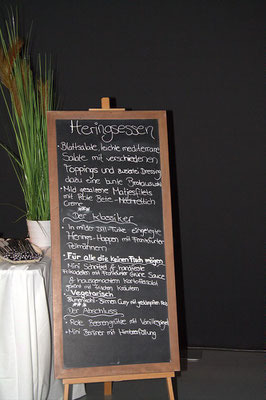 Heringsessen
• Blattsalate, leichte mediterrane
Salate mit verschiedenen
Toppings und zweierlei Dressing
dazu eine bunte Brotauswahl
• Mild gesalzene Matjesfilets
mit Rote Bete - Meerrettich
Creme
Der Klassiker
• In milder Dill-Tunke eingelegte
Herings-Happen mit Frankfurter
Pellmännern
• Für alle die keinen Fisch mögen
Mini Schnitzel & hausgemachte
Frikadellen mit Frankfurter Grüne Sauce
& hausgemachtem Kartoffelsalat
mit frischen Kräutern
• Vegetarisch
Birnen Curry mit
Der Abschluss
• Rote Beerengrütze mit Vanillespiegel
• Mini Berliner mit Himbeerfüllung